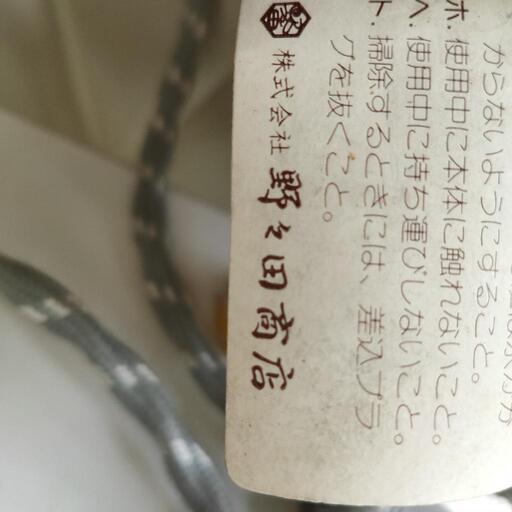 からないようにすること。
ホ. 使用中に本体に触れないこと。
ヘ. 使用中に持ち運びしないこと。
ト. 掃除するときには、差込プラ
グを抜くこと。
株式会社 野々田商店